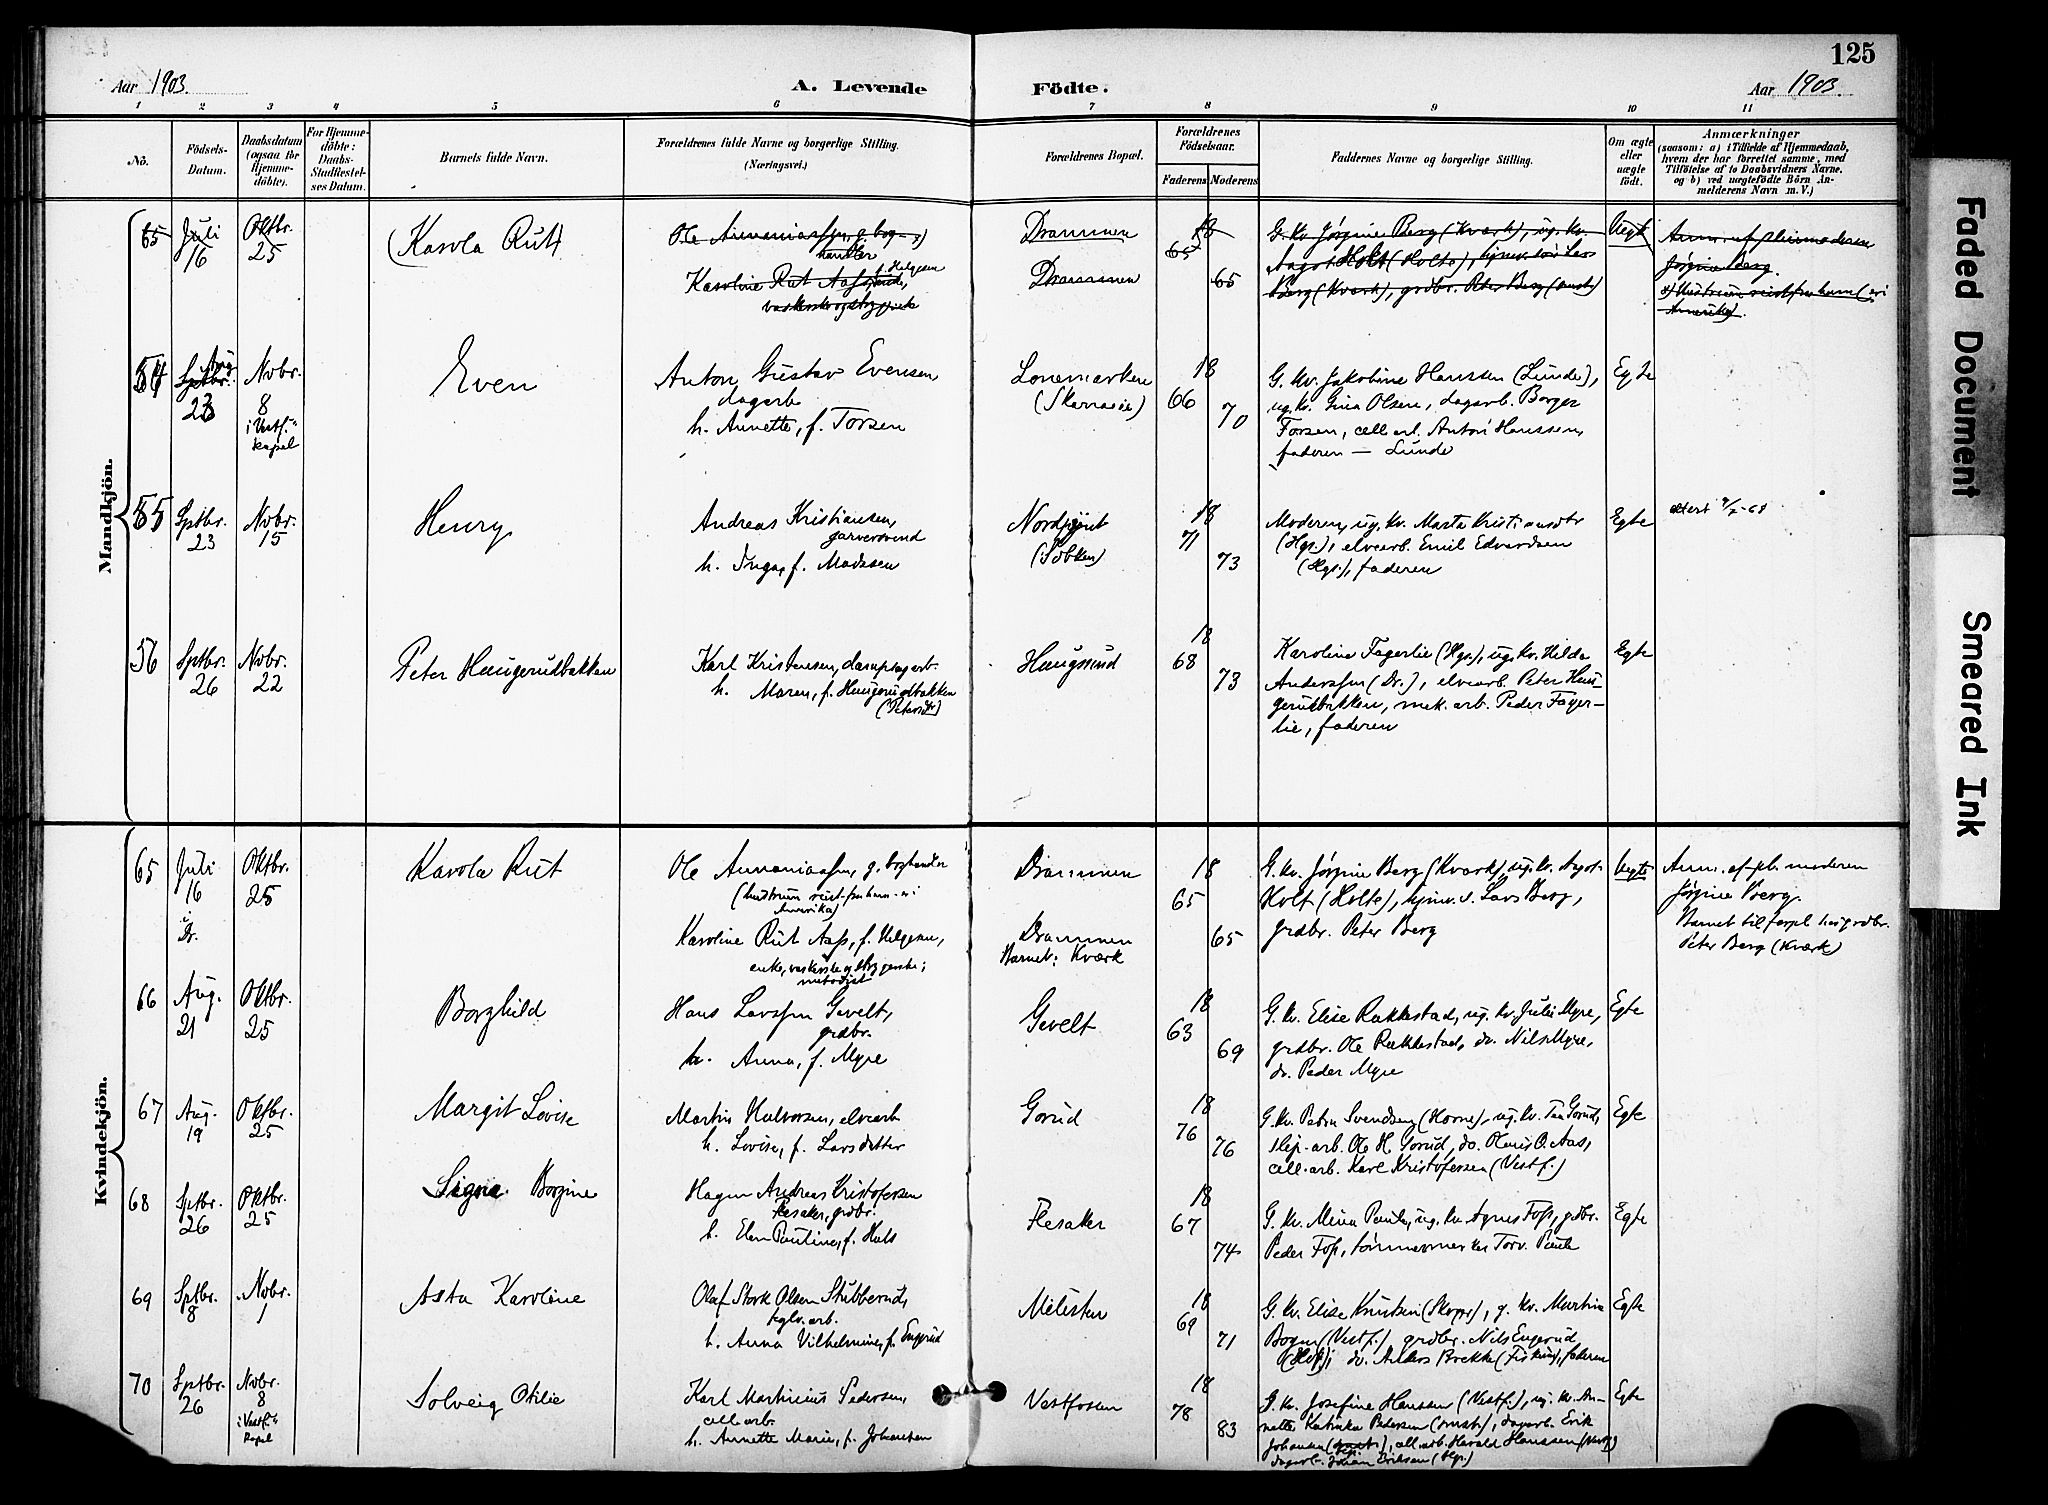 125
Aar 1903.
A. Levende
Födte.
Aar 1903.
1 2 3 4 5 6 7 8 9 10 11
No.
Födsels-
Datum.
Daabsdatum
(ogsaa for
Hjemme-
döbte).
For Hjemme-
döbte:
Daabs-
Stadfæstel-
ses Datum.
Barnets fulde Navn.
Forældrenes fulde Navne og borgerlige Stilling.
(Næringsvei.)
Forældrenes Bopæl.
Forældrenes
Födselsaar.
Faderens Moderens
Faddernes Navne og borgerlige Stilling.
Om ægte
eller
uægte
födt.
Anmærkninger
(saasom: a) i Tilfælde af Hjemmedaab,
hvem der har forrettet samme, med
Tilföielse af to Daabsvidners Navne.
og b) ved uægtefödte Börn An-
melderens Navn m. V.)
Mandkjön.
65 Juli
16
Oktbr.
25
(Karola Rut)
handler
Karoline Rut Aass, f. Helgesen
Drammen
Drammen
18
65
65
G. kv. Jörgine Berg (Kværk), ug. kv.
Aagot Holt (Holte),
Berg (Kværk), grdbr. Peter Berg
Uegte
Anm. af pleiemoderen
Jörgine Berg.
Amerika).
54 Aug
23
Novbr.
8
i Vestf.
kapel
Even
Anton Gustav Evensen
dagarb.
h. Annette, f. Torsen
Lonemarken
18
66
70
G. kv. Jakobine Hanssen (Lunde),
ug. kv. Gina Olsen, dagarb. Borger
Torsen, cell. arb. Anton Hanssen,
faderen — Lunde
Egte
55 Sptbr.
23
Novbr.
15
Henry
Andreas Kristiansen,
garversvend
h. Inga, f. Madssen
18
71
73
Moderen, ug. kv. Marta Kristiansdtr
(Hgs.), elvearb. Emil Edvardsen
(Hgs.), faderen
Egte
56 Sptbr.
26
Novbr.
22
Peter Haugerudbakken
Karl Kristensen, dampsagarb.
h. Maren, f. Haugerudbakken
(Petersdtr)
Haugsund
18
68
73
Karoline Fagerlie (Hgs.), ug. kv. Hilda
Anderssen (Dr.), elvearb. Peter Hau-
gerudbakken, mek. arb. Peder Fager-
lie, faderen
Egte
Kvindekjön.
65 Juli
16
i
Dr.
Oktbr.
25
Karola Rut
Ole Annaniassen, g. boghandler
(hustruen reist fra ham - er i
Amerika)
Karoline Rut Aass, f. Helgesen,
enke, vaskerske og strygerske;
metodist
Drammen
Drammen
Barnet: Kværk
18
65
65
G. kv. Jörgine Berg (Kværk), ug. kv. Aagot
Holt (Holte), hjmv. s. Lars Berg,
grdbr. Peter Berg
Uegte
Anm. af pl. moderen
Jörgine Berg.
Barnet til forpl. hos grdbr.
Peter Berg (Kværk)
66 Aug.
21
Oktbr.
25
Borghild
Hans Larssen Gevelt,
grdbr.
h. Anna, f. Myre
Gevelt
18
63
69
G. kv. Elise Rakkestad, ug. kv. Julie Myre,
grdbr. Ole Rakkestad, do. Nils Myre,
do. Peder Myre
Egte
67 Aug.
19
Oktbr.
25
Margit Lovise
Martin Halvorsen, elvearb
h. Lovise, f. Larsdatter
Gorud
18
76
76
G. kv. Petra Svendsen (Horne), ug. kv. Tea Gorud,
slip. arb. Ole H. Gorud, do. Olaus O. Aas,
cell. arb. Karl Kristofersen (Vestf.)
Egte
68 Sptbr.
26
Oktbr.
25
Signe Borgine
Hagen Andreas Kristofersen
Flesaker, grdbr.
h. Elen Pauline, f. Hals
Flesaker
18
67
74
G. kv. Mina Paule, ug. kv. Agnes Foss, grdbr.
Peder Foss, tömmermerker Torv. Paule
Egte
69 Sptbr.
8
Novbr.
1
Asta Karoline
Olaf Stork Olsen Stubberud,
tglv. arb.
h. Anna Vilhelmine, f. Engerud
18
69
71
G. kv. Elise Knutsen, g. kv. Martine
Bogen (Vestf.), grdbr. Nils Engerud
do. Anders Brekke (Fiskum), faderen
Egte
70 Sptbr.
26
Novbr.
8
i Vestf.
kapel
Solveig Otilie
Karl Martinius Pedersen,
cell. arb.
h. Annette Marie, f. Johansen
Vestfossen
18
78
83
G. kv. Josefine Hanssen (Vestf.), ug. kv. An-
nette Katinka Pedersen, dagarb. Erik
Johansen, cell. arb. Harald Hanssen (Vestf.)
dagarb. Johan Eriksen (Hgs.)
Egte
Faded Document
Smeared Ink